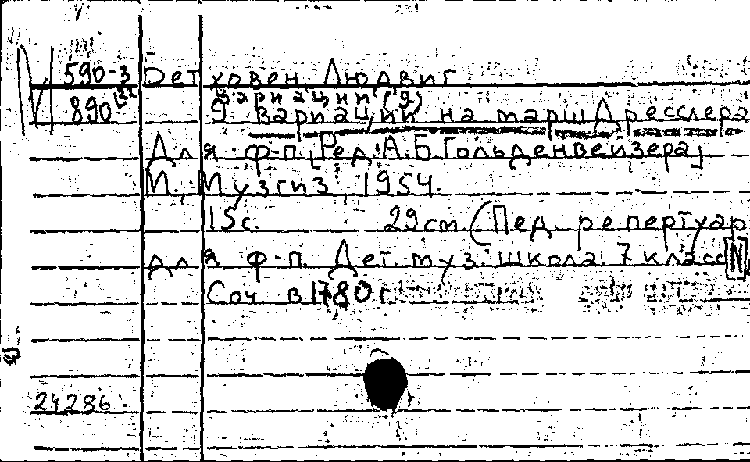 590-3 Бетховен Людвиг
890 Вариации (9)
9 вариаций на марш Дресслера
Для ф-п. [Ред. А.Б. Гольденвейзера]
М., Музгиз, 1954.
15с. 29 см (Пед. репертуар
для ф-п. Дет. муз. школа. 7 класс
Соч. в 1780 г.
24286